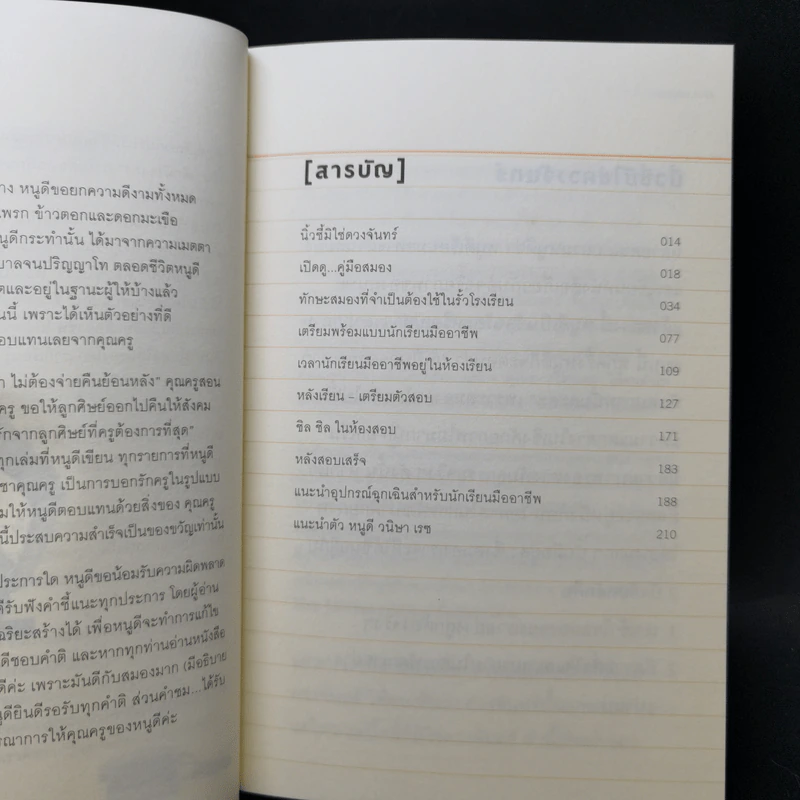 าง หนูดีขอยกความดีงามทั้งหมด
แพรก ข้าวตอกและดอกมะเขือ
นูดีกระทำนั้น ได้มาจากความเมตตา
บาลจนปริญญาโท ตลอดชีวิตหนูดี
ดและอยู่ในฐานะผู้ให้บ้างแล้ว
นนี้ เพราะได้เห็นตัวอย่างที่ดี
อบแทนเลยจากคุณครู
า ไม่ต้องจ่ายคืนย้อนหลัง” คุณครูสอน
ครู ขอให้ลูกศิษย์ออกไปคืนให้สังคม
รักจากลูกศิษย์ที่ครูต้องการที่สุด”
ทุกเล่มที่หนูดีเขียน ทุกรายการที่หนูดี
ชาคุณครู เป็นการบอกรักครูในรูปแบบ
มให้หนูดีตอบแทนด้วยสิ่งของ คุณครู
นี้ประสบความสำเร็จเป็นของขวัญเท่านั้น
ประการใด หนูดีขอน้อมรับความผิดพลาด
ดีรับฟังคำชี้แนะทุกประการ โดยผู้อ่าน
ฉริยะสร้างได้ เพื่อหนูดีจะทำการแก้ไข
ดีชอบคำติ และหากทุกท่านอ่านหนังสือ
ดีค่ะ เพราะมันดีกับสมองมาก (มีอธิบาย
นูดียินดีรอรับทุกคำติ ส่วนคำชม...ได้รับ
รณาการให้คุณครูของหนูดีค่ะ
[สารบัญ]
นิ้วชี้มิใช่ดวงจันทร์ 014
เปิดดู...คู่มือสมอง 018
ทักษะสมองที่จำเป็นต้องใช้ในรั้วโรงเรียน 034
เตรียมพร้อมแบบนักเรียนมืออาชีพ 077
เวลานักเรียนมืออาชีพอยู่ในห้องเรียน 109
หลังเรียน - เตรียมตัวสอบ 127
ชิล ชิล ในห้องสอบ 171
หลังสอบเสร็จ 183
แนะนำอุปกรณ์ฉุกเฉินสำหรับนักเรียนมืออาชีพ 188
แนะนำตัว หนูดี วนิษา เรซ 210